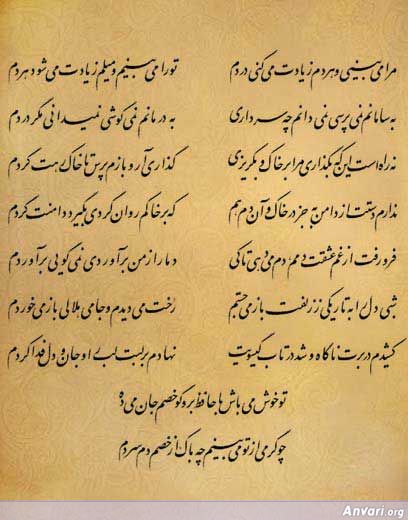 مرا می بینی و هر دم زیادت می کنی دردم تو را می بینم و میلم زیادت می شود هر دم
به سامانم نمی پرسی نمی دانم چه سر داری به درمانم نمی کوشی نمیدانی مگر دردم
نه راه است این که بگذاری مرا بر خاک و بگریزی گذاری آر و بازم پرس تا خاک رهت گردم
ندارم دستت از دامن به جز در خاک و آن دم هم که بر خاکم روان گردی بگیرد دامنت گردم
فرو رفت از غم عشقت دمم دم می دهی تا کی دمار از من برآوردی نمی گویی برآوردم
شبی دل را به تاریکی ز زلفت باز می جستم رخت می دیدم و جامی هلالی باز می خوردم
کشیدم در برت ناگاه و شد در تاب گیسویت نهادم بر لبت لب را و جان و دل فدا کردم
تو خوش می باش با حافظ برو گو خصم جان می ده
چو گرمی از تو می بینم چه باک از خصم دم سردم
Anvari.org